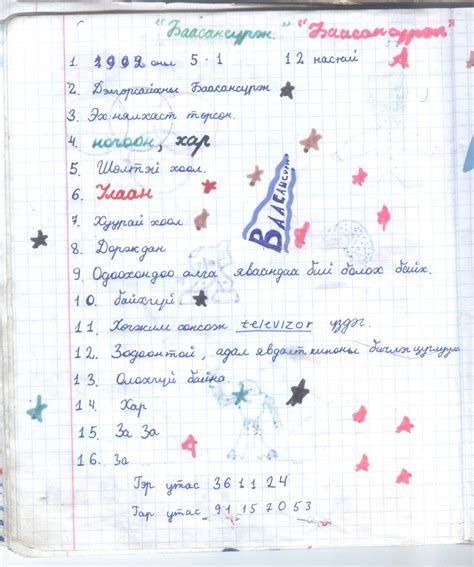 "Баасансүрэн." "Баасансүрэн"
1. 1992 оны 5 · 1 12 настай
2. Дэмүрсайханы Баасансүрэн
3. Эх нялхаст төрсөн.
4. ногоон, хар
5. Шөлтэй хоол.
6. Улаан
7. Хуурай хоол
8. Доржпдан
9. Одоохондоо алга явсандаа бий болох байх.
10. байхгүй
11. Хөгжим сонсож televizor үздэг.
12. Зодоонтой, адал явдалт киноны бичлэг
13. Олохгүй байна.
14. Хар
15. За За
16. За
Гэр утас 361124
Гар утас 91157053